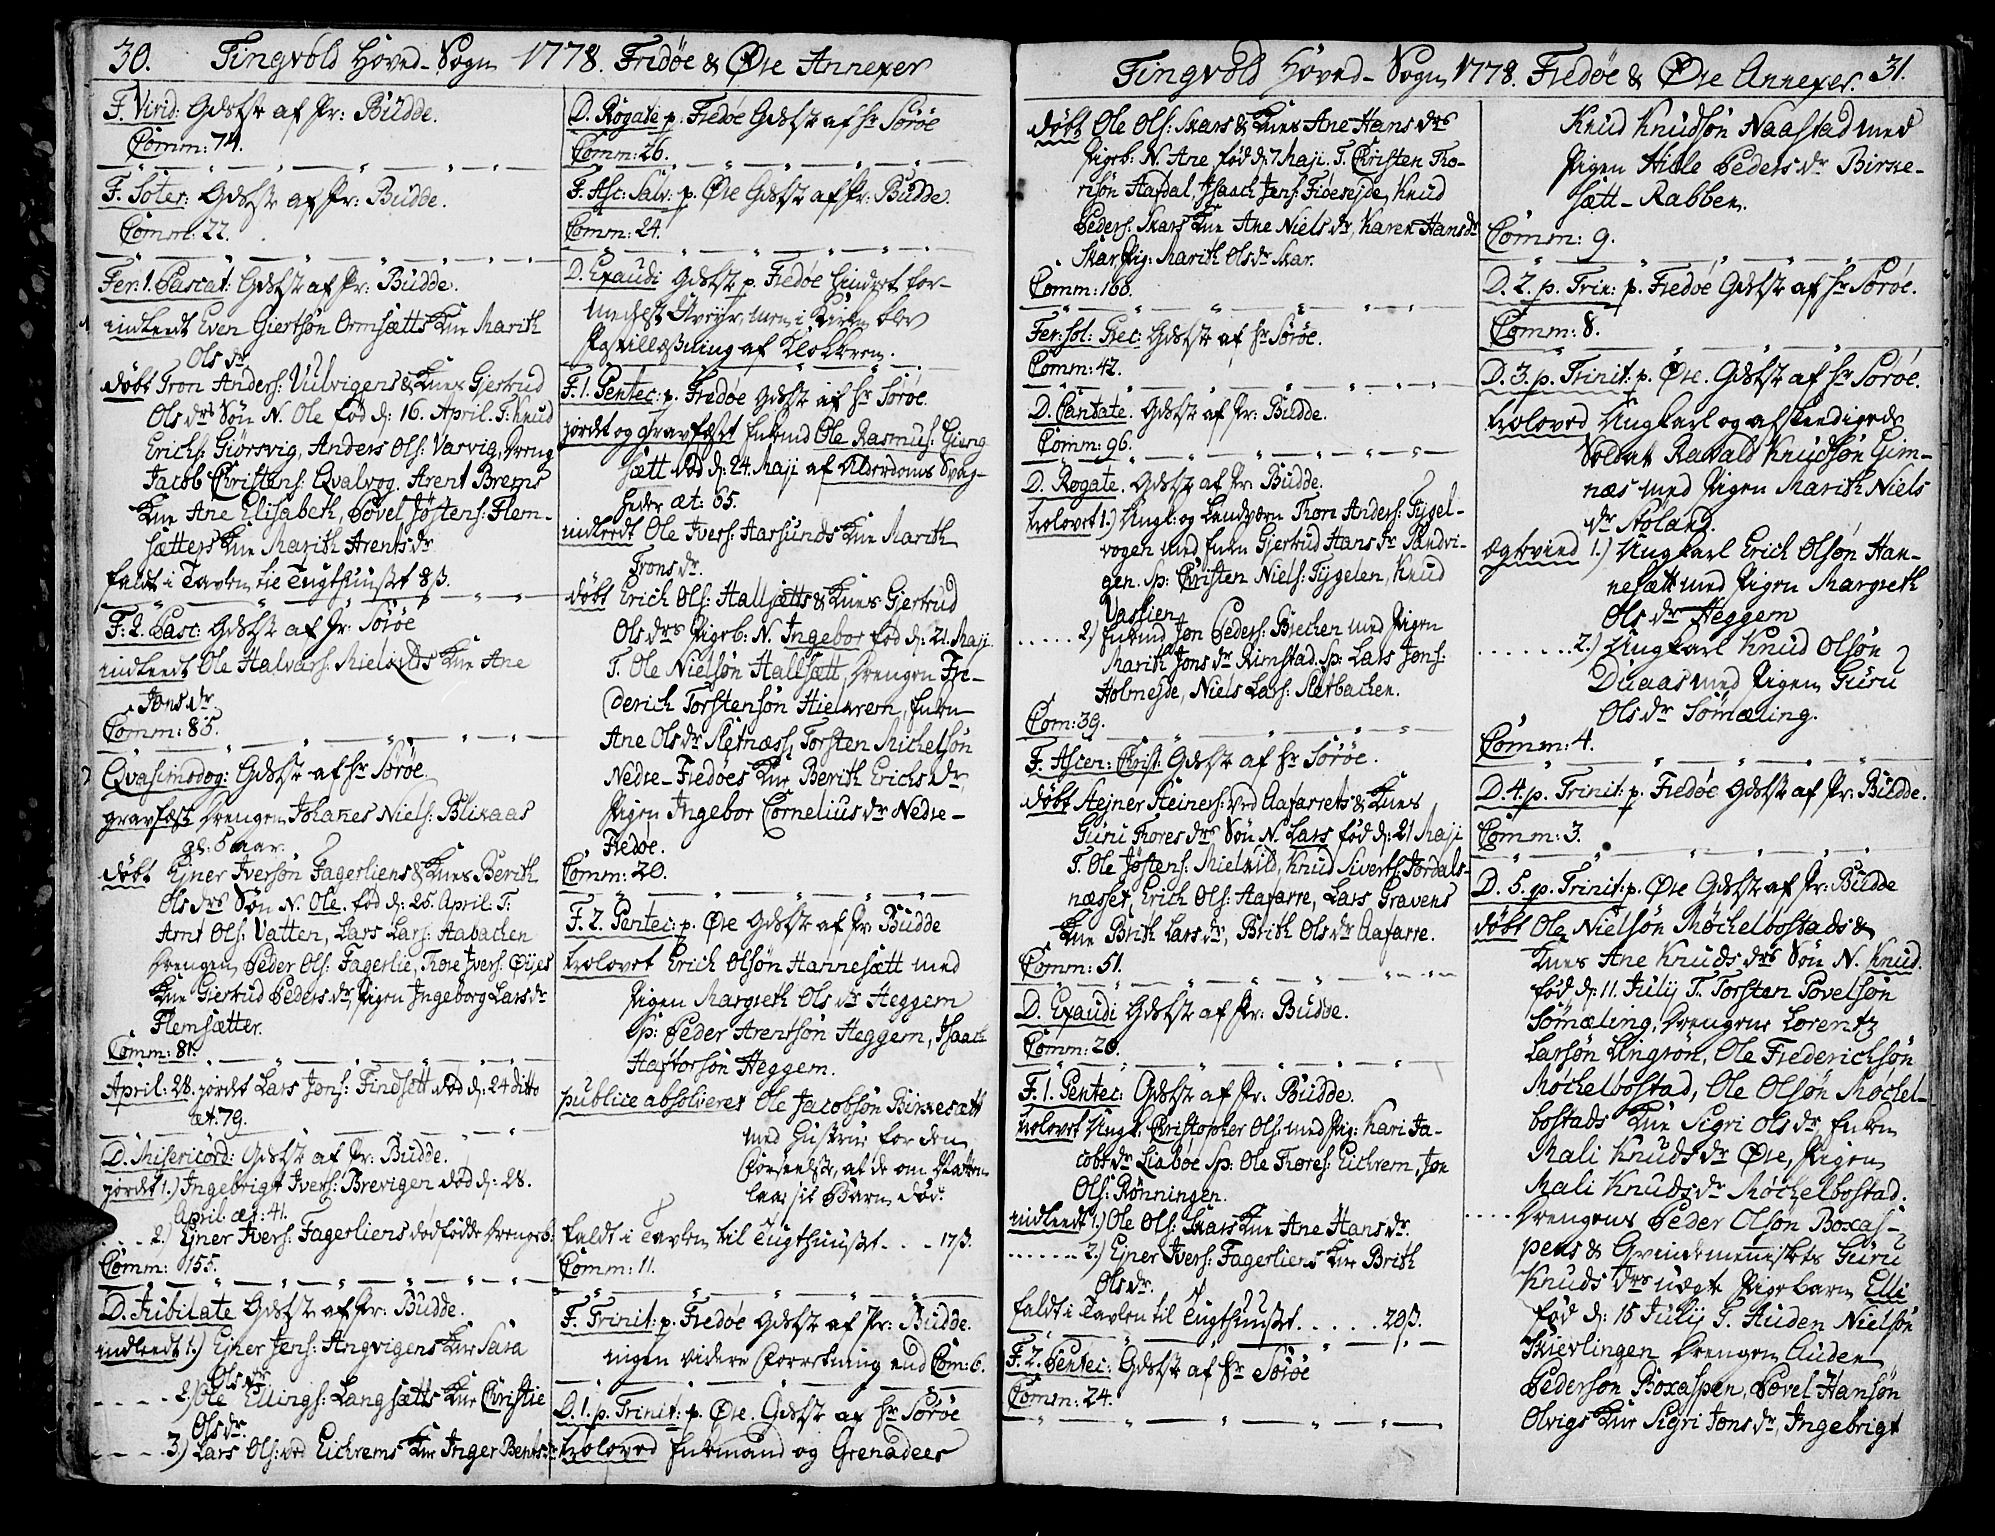 30. Tingvold Hoved-Sogn 1778. Fredøe & Øre Annexer
F. Virid: Gdstst af Pr: Budde.
Comm: 74.
F. Soter: Gdstst af Pr: Budde.
Comm: 22.
Fer: 1. Pascat: Gdstst af Pr: Budde.
indleedt Even Giertsøn Ormsætts Kne Marith
Ols dr
døbt Tron Anders: Vulvigens & Knes Gjertrud
Ols drs Søn N. Ole fød d: 16. April. T: Knud
Erichs: Giørsvig, Anders Ols: Vasvig, Dreng
Jacob Christens: Qvalvog. Arent Brems
Kne Ane Elisabeth, Povel Jøstens: Flem-
sætters Kne Marith Arents dr
faldt i Tavlen til Tugthuuset 8 ß.
F: 2. Pasc: Gdstst af Hr Sørøe
indleedt Ole Halvars: Mielvilds Kne Ane
Jons dr
Comm: 85.
Qvasimodog: Gdstst af Hr Sørøe.
gravfæst Drengen Johanes Niels: Blikaas
gl: 5 aar.
døbt Ejner Iversøn Fagerliens & Knes Berith
Ols drs Søn N. Ole. fød d: 25. April. T:
Arnt Ols: Vatten, Lars Lars: Aabachen
Drengen Peder Ols: Fagerlie, Thore Ivers: Øijes
Kne Giertrud Peders dr, Pigen Ingeborg Lars dr
Flemsætter.
Comm: 81.
April: 28. jordet Lars Jons: Findsett død d: 24 ditto
æt: 79.
D. Misericord: Gdstst af Pr: Budde.
jordet 1.) Ingebrigt Ivers: Brevigen død d: 28.
April. æt: 41.
2.) Ejner Ivers: Fagerliens dødfødde Drengeb:
Comm: 155.
D. Jubilate Gdstst af Pr: Budde.
indleedt 1.) Ejner Jens: Angvigens Kne Sara
Ols dr
2.) Ole Ellings: Langsætts Kne Christie
Ols dr.
3.) Lars Ols: ved Eichrems Kne Inger Bents dr
D. Rogate p. Fredøe Gdstst af Hr Sørøe
Comm: 26.
F. Asc: Salv: p. Øre Gdstst af Pr: Budde.
Comm: 24.
D. Exaudi Gdstst p. Fredøe hindret for-
medelst Uveyr, men i Kirken blev
Postilllæsning af Klokkeren.
F. 1. Pentec: p. Fredøe Gdstst af Hr Sørøe.
jordet og gravfæst Enkmd Ole Rasmus: Gieng
sætt død d: 24. Maji af Alderdoms Svag-
heder æt: 65.
indleedt Ole Ivers: Aarsunds Kne Marith
Trons dr.
døbt Erich Ols: Hallsætts & Knes Gjertrud
Ols drs Pigeb: N. Ingebor fød d: 21. Maji
T. Ole Nielsøn Hallsætt, Drengen Fri-
derich Torstensøn Hielkrem, Enken
Ane Ols dr Sletnæss, Torsten Michelsøn
Nedre-Fredøes Kne Berith Erichs dr,
Pigen Ingebor Cornelius dr Nedre-
Fredøe.
Comm: 20.
F. 2. Pentec: p. Øre Gdstst af Pr Budde
trolovet Erich Olsøn Hannesætt med
Pigen Margreth Ols dr Heggem
Sp: Peder Arentsøn Heggem, Isaach
Haftorsøn Heggem.
publice absolveret Ole Jacobsøn Birkesætt
med Hustrue for den
Forseelse, at de om Natten
laae sit Barn død.
faldt i Tavlen til Tugthuuset . . . 17 ß.
Comm: 11.
F. Trinit: p. Fredøe Gdstst af Pr: Budde.
ingen videre Forretning end Com: 6.
D. 1. p. Trinit: p. Øre. Gdstst af Hr Sørøe
troloved Enkemand og Grenadeer
Tingvold Hoved-Sogn 1778. Fredøe & Øre Annexer. 31.
døbt Ole Ols: Skars & Knes Ane Hans drs
Pigeb: N. Ane, fød d: 7 Maji. T. Christen Tho-
risøn Aafdal, Isaach Jens: Fideresjde, Knud
Peders: Skars Kne Ane Niels dr, Karen Hans dr
Skar Pig: Marith Ols dr Skar.
Comm: 166.
Fer: sol: Prec: Gdstst af Hr Sørøe.
Comm: 42.
D. Cantate. Gdstst af Pr: Budde.
Comm: 96.
D. Rogate. Gdstst af Pr: Budde.
trolovet 1.) Ungk: og Landværn Thron Anders: Tygel-
vogen med Enken Gjertrud Hans dr Sandvi-
gen. Sp: Christen Niels: Tygelen, Knud
Vaslien
2.) Enkmd Jon Peders: Brechen med Pigen
Marith Jons dr Rimstad. Sp: Lars Jons:
Holmejde, Niels Lars: Sletbachen.
Com: 39.
F. Ascen: Christ: Gdstst af Hr Sørøe.
døbt Stejner Steiners: ved Aafarrets & Knes
Guru Thores drs Søn N. Lars fød d: 21 Maji
T. Ole Jøstens: Mielvild, Knud Siverts: Jordals-
næsset, Erich Ols: Aafarre, Lars Gravens
Kne Brith Lars dr, Brith Ols dr Aafarre.
Comm: 51.
D. Exaudi Gdstst af Pr: Budde.
Comm: 20.
F. 1. Pentec: Gdstst af Pr: Budde.
trolovet Ungk: Christopher Ols: med Pig: Kari Ja-
cobs dr Liaboe Sp: Ole Thores: Eichrem, Jon
Ols: Rønningen.
indleedt 1.) Ole Ols: Skars Kne Ane Hans dr.
2.) Ejner Ivers: Fagerliens Kne Brith
Ols dr.
faldt i Tavlen til Tugthuuset . . . . . 20 ß.
F. 2. Pentec: Gdstst af Hr Sørøe
Comm: 24.
Knud Knudsøn Naastad med
Pigen Hille Peders dr Birke-
sætt-Rabben.
Comm: 9.
D. 2. p. Trin: p. Fredøe Gdstst af Hr Sørøe.
Comm: 8.
D. 3. p. Trinit: p. Øre. Gdstst af Hr Sørøe.
troloved Ungkarl og afskeedigede
Soldat Ravald Knudsøn Gim-
næs med Pigen Marith Niels
dr Støland.
Ægtevied 1.) Ungkarl Erich Olsøn Han-
nesætt med Pigen Margreth
Ols dr Heggem
2.) Ungkarl Knud Olsøn
Duaas med Pigen Guru
Ols dr Sømæling.
Comm: 4.
D. 4. p. Trinit: p. Fredøe Gdstst af Pr: Budde.
Comm: 3.
D. 5. p. Trinit: p. Øre Gdstst af Pr: Budde
døbt Ole Nielsøn Møchelbostads &
Knes Ane Knuds drs Søn N. Knud.
fød d: 11 Julij T. Torsten Povelsøn
Sømæling, Drengene Lorentz
Larsøn Lingrøn, Ole Frederichsøn
Møchelbostad, Ole Olsøn Møchel-
bostads Kne Sigri Ols dr Enken
Mali Knuds dr Øre, Pigen
Mali Knuds dr Møchelbostad.
Drengens Peder Olsøn Boxas-
pens & Qvindemenniskes Guru
Knuds drs uægte Pigebarn Elli
fød d: 15 Julij T. Auden Nielsøn
Skievlingen Drengen Auden
Pedersøn Boxaspen, Povel Hansøn
Olvigs Kne Sigri Jons dr, Ingebrigt